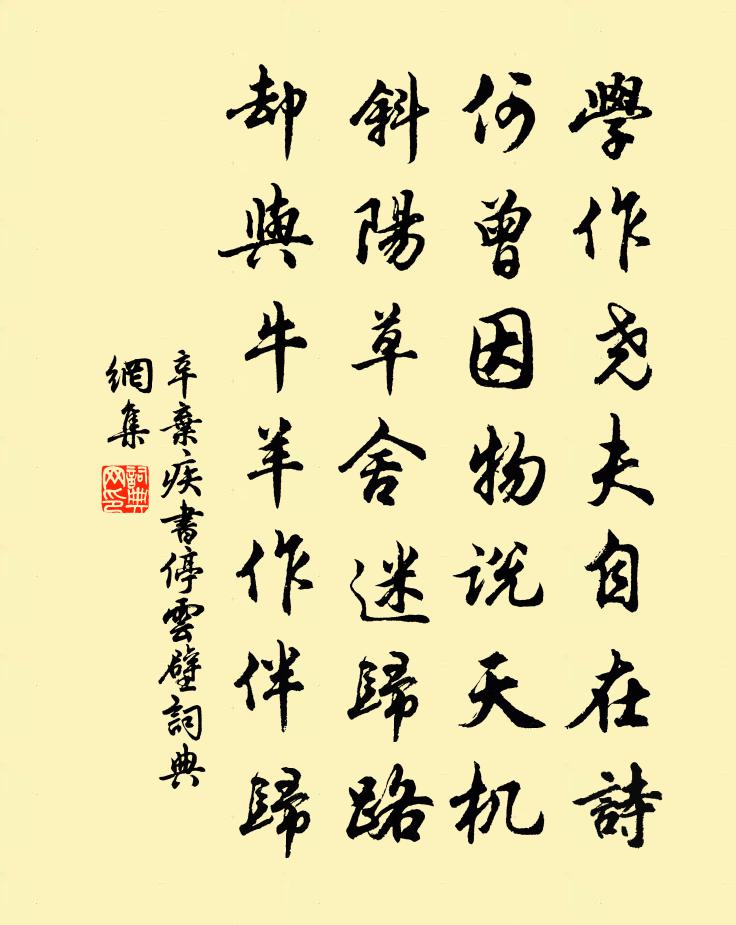 學作尧夫自在詩
何曾因物说天机
斜陽草舍迷歸路
却與牛羊作伴歸
辛棄疾書停雲壁詞典
網集
詞典
网印